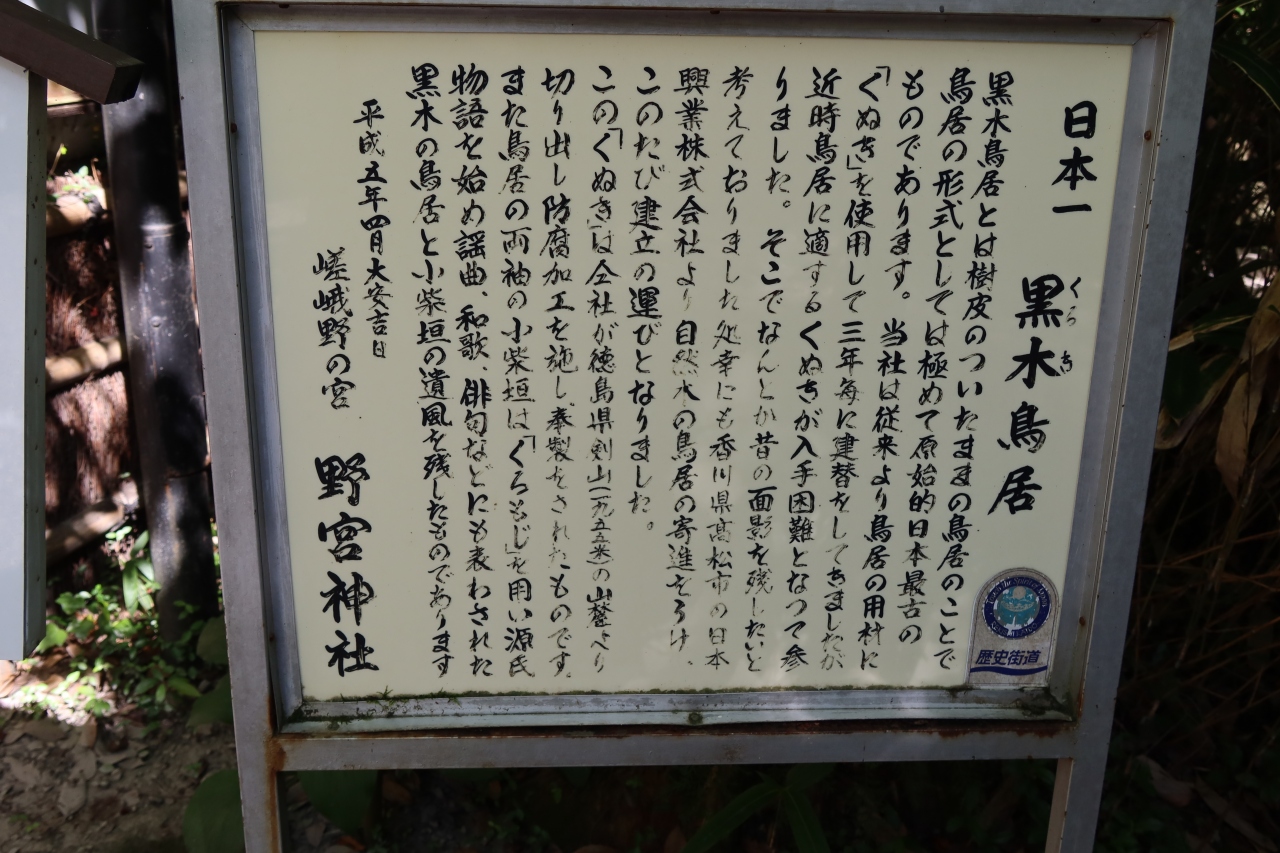 日本一 黒木鳥居
くろき
黒木鳥居とは樹皮のついたままの鳥居のことで
鳥居の形式としては極めて原始的日本最古の
ものであります。当社は従来より鳥居の用材に
「くぬぎ」を使用して三年毎に建替をしてきましたが
近時鳥居に適するくぬぎが入手困難となって参
りました。そこでなんとか昔の面影を残したいと
考えておりました処幸にも香川県高松市の日本
興業株式会社より自然木の鳥居の寄進をうけ、
このたび建立の運びとなりました。
この「くぬぎ」は仝社が徳島県剣山(一九五五米)の山麓より
切り出し防腐加工を施し奉製をされたものです。
また鳥居の両袖の小柴垣は「くろもじ」を用い源氏
物語を始め謡曲、和歌、俳句などにも表わされた
黒木の鳥居と小柴垣の遺風を残したものであります
平成五年四月大安吉日
嵯峨野の宮 野宮神社
歴史街道